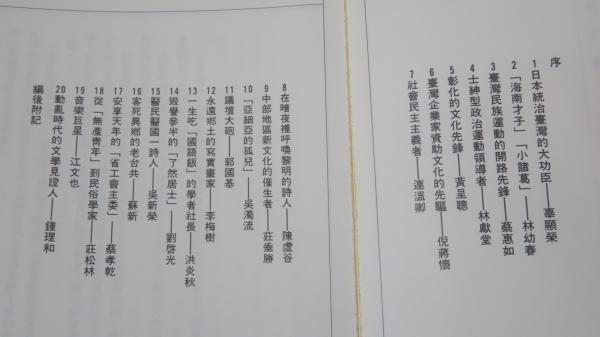 序
1日本統治臺灣的大功臣——辜顯榮
2「海南才子」「小諸葛」——林幼春
3臺灣民族運動的開路先鋒——蔡惠如
4士紳型政治運動領導者——林獻堂
5彰化的文化先鋒——黃呈聰
6臺灣企業家資助文化的先驅——倪蔣懷
7社會民主主義者——連溫卿
8在暗夜裡呼喚黎明的詩人——陳虛谷
9中部地區新文化的催生者——莊垂勝
10「亞細亞的孤兒」——吳濁流
11議壇大砲——郭國基
12永遠鄉土的寫實畫家——李梅樹
13一生吃「國語飯」的學者社長——洪炎秋
14毀譽參半的「了然居士」——劉啓光
15醫民醫國一詩人——吳新榮
16客死異鄉的老台共——蘇新
17安享天年的「省工會主委」——蔡孝乾
18從「無產青年」到民俗學家——莊松林
19音樂巨星——江文也
20動亂時代的文學見證人——鍾理和
編後附記